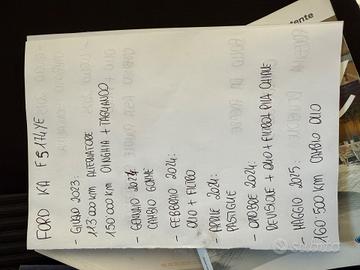 FORD KA FS174YE
- GIUGNO 2023:
113'000 KM ALTERNATORE
150'000 KM CINGHIA + TAGLIANDO
- GENNAIO 2024:
CAMBIO GOMME
- FEBBRAIO 2024:
OLIO + FILTRO
- APRILE 2024:
PASTIGLIE
- OTTOBRE 2024:
OLIO + FILTRO
- MAGGIO 2025:
160'500 KM CAMBIO OLIO
Subito